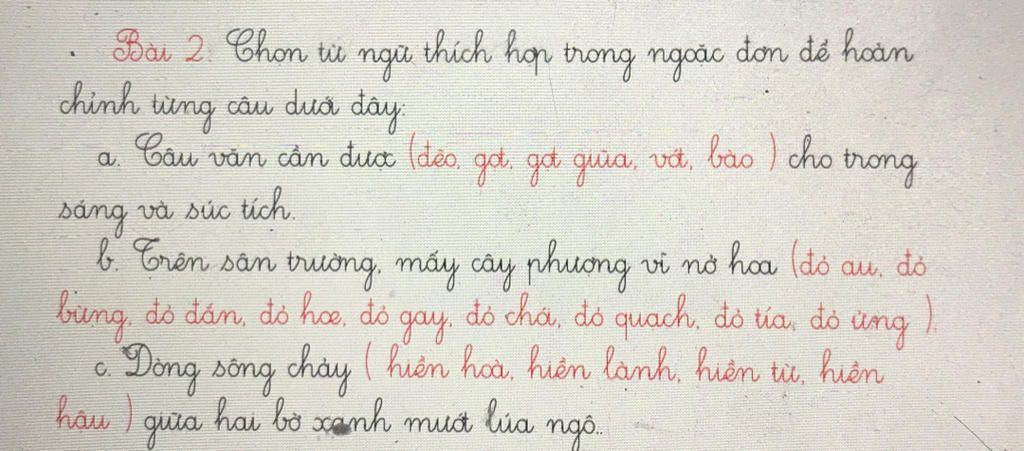 . Bài 2. Chọn từ ngữ thích hợp trong ngoặc đơn để hoàn
chỉnh từng câu dưới đây:
a. Câu văn cần được (đẽo, gọt, gọt giũa, vót, bào ) cho trong
sáng và súc tích.
b. Trên sân trường, mấy cây phượng vĩ nở hoa (đỏ au, đỏ
bừng, đỏ đắn, đỏ hoe, đỏ gay, đỏ chói, đỏ quạch, đỏ tía, đỏ ửng ).
c. Dòng sông chảy ( hiền hoà, hiền lành, hiền từ, hiền
hậu ) giữa hai bờ xanh mướt lúa ngô..